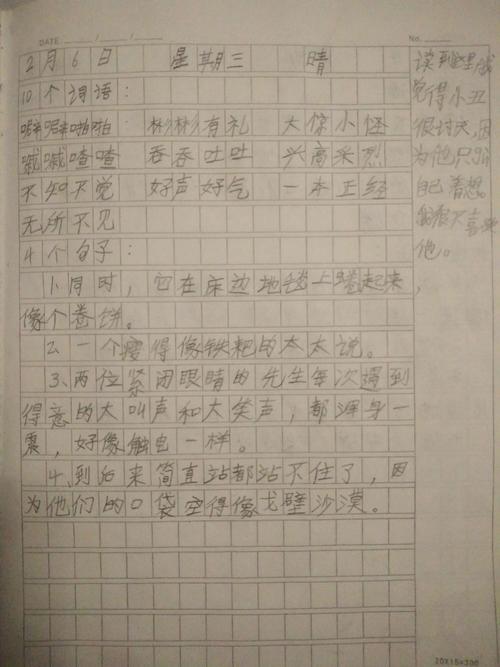 DATE / /
No.
2月6日 星期三 晴
10个词语:
噼噼啪啪 彬彬有礼 大惊小怪
喊喊喳喳 吞吞吐吐 兴高采烈
不知不觉 好声好气 一本正经
无所不见
4个句子:
1.同时，它在床边地毯上蜷起来，
像个卷饼。
2.一个瘦得像铁耙的太太说。
3.两位紧闭眼睛的先生每次遇到
得意的大叫声和大笑声，都浑身一
震，好像触电一样。
4.到后来简直站都站不住了，因
为他们的口袋空得像戈壁沙漠。
读到这里我
觉得小丑
很讨厌，因
为他只为
自己着想。
我很不喜欢
他。
20X15=300